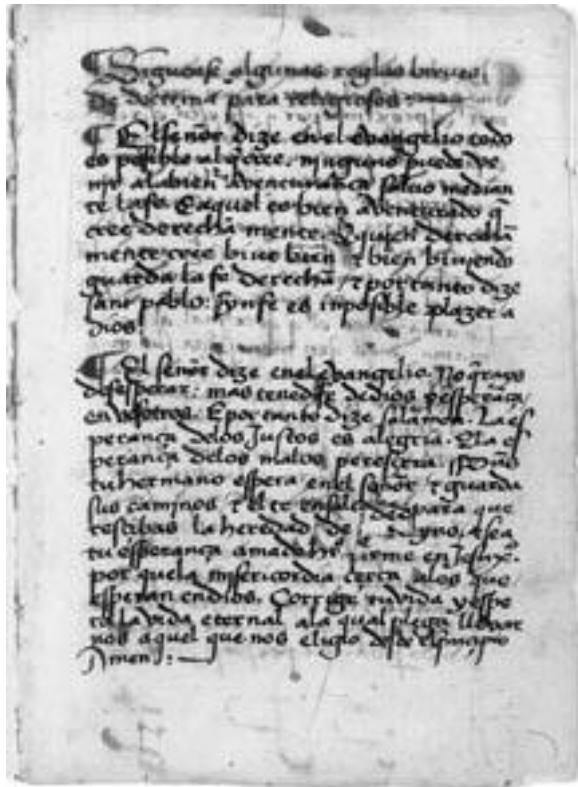 ¶ Siguense algunas reglas breves
De doctrina para religiosos.
¶ El señor dize en el evangelio todo
es posible al q̃ cree. ninguno puede ve
nir a la bien aventurança salvo median
te la fe. E aquel es bien aventurado q̃
cree derecha mente. E quien derecha
mente cree bive bien / ⁊ bien biviendo
guarda la fe derecha / ⁊ por tanto dize
sant pablo: Syn fe es inposible plazer a
dios.
¶ El señor dize en el evangelio. No q̃rays
desesperar: mas tened fe de dios ⁊ esperãça
en vosotros. E por tanto dize salamon. La es
perança delos Justos es alegria. E la es
perança delos malos peresceria. Pues
tu hermano espera en el señor ⁊ guarda
sus caminos ⁊ el te ensalçe para que
rescibas la heredad de ⁊ sea
tu esperança amado hr̃ firme en Jesu x̃o.
por que la misericordia cerca alos que
esperan en dios. Corrige tu vida y espe
ra la vida eternal ala qual plega llevar
nos aquel que nos eligio desde el principio
Amen: